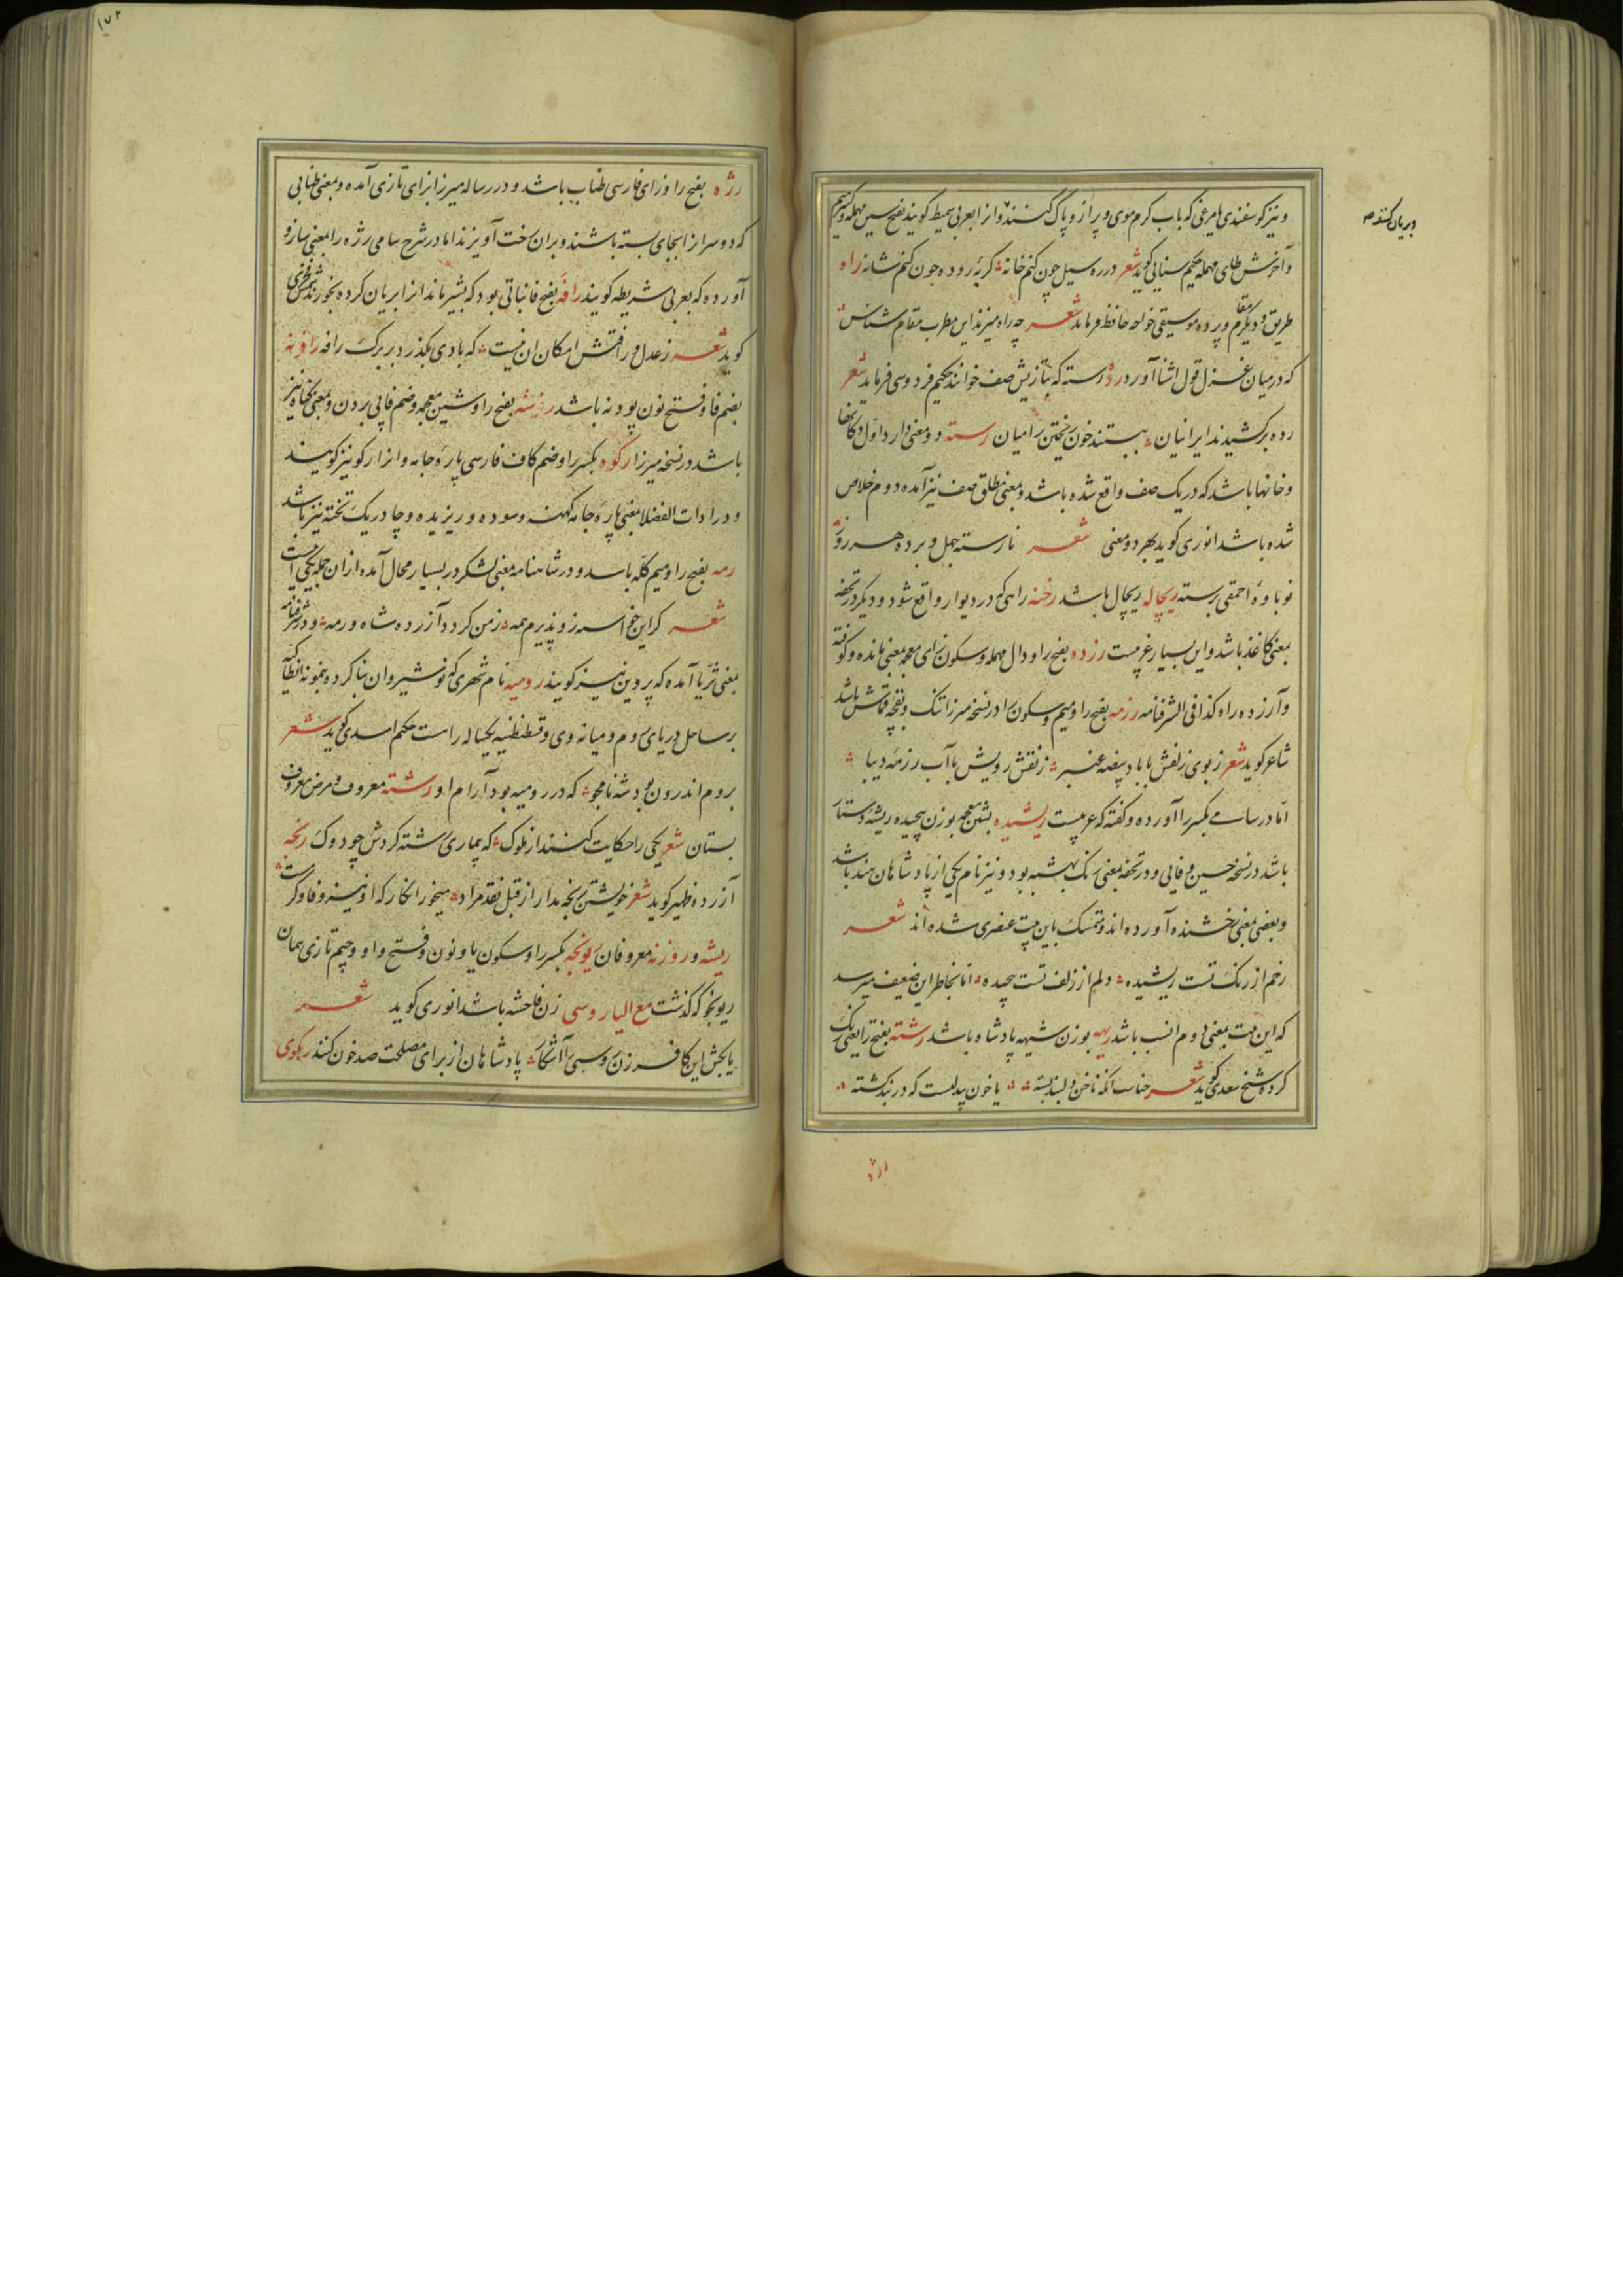 و نیز گوسفندی یا مرغی که بآب گرم موی و پر از و پاک کنند و انرا بعربی سمیط گویند بفتح سین مهمله و کسر میم
و آخرش طای مهمله حکیم سنایی گوید شعر در ره سیل چون کنم خانه گربهٔ روده چون کنم شانه راه
طریق و دیگر مقام و پرده موسیقی خواجه حافظ فرماید شعر چه راه میزند این مطرب مقام شناس
که در میان غزل قول اشنا آورد رده رسته که بتازیش صف خوانند حکیم فردوسی فرماید شعر
رده برکشیدند ایرانیان ببستند خون ریختن را میان رسته دو معنی دارد اول دکانها
و خانها باشد که در یک صف واقع شده باشد و بمعنی مطلق صف نیز آمده دوم خلاص
شده باشد انوری گوید بهر دو معنی شعر نارسته جهل و برده هر روز
نوباوهٔ احمقی برسته ریچاله ریچال باشد رخنه راهی که در دیوار واقع شود و دیگر در تحفه
بمعنی کاغذ باشد و این بسیار غریبست رزده بفتح را و دال مهمله و سکون زای معجمه بمعنی مانده و کوفته
و آزرده راه کذا فی الشرفنامه رزمه بفتح را و میم و سکون زا در نسخه میرزا تنگ و بقچه قماش باشد
شاعر گوید شعر ز بوی زلفش با باد بیضه عنبر ز نقش رویش با آب رزمهٔ دیبا
اما در سامی بکسر را آورده و گفته که عربیست ریشیده بشین معجمه بوزن پیچیده ریشهٔ دستار
باشد در نسخه حسین وفایی و در تحفه بمعنی رنک بهشبه بود و نیز نام یکی از پادشاهان هند باشد
و بعضی بمعنی رخشنده آورده اند و متمسک باین بیت عنصری شده اند شعر
رخم از رنک تست ریشیده دلم از زلف تست پیچیده اما بخاطر این ضعیف میرسد
که این بیت بمعنی دوم انسب باشد ریهه بوزن شیهه پادشاه باشد رشته بفتح را یعنی رنک
کرده شیخ سعدی گوید شعر حناست انکه ناخن دلبند بسته یا خون بیدلیست که در بند کشته
رژه
بریان کنند صح
۱۷۲
رژه بفتح را و زای فارسی طناب باشد و در رساله میرزا بزای تازی آمده و بمعنی طنابی
که دو سر انرا بجای بسته باشند و بران رخت آویزند اما در شرح سامی رژه را بمعنی سارو
آورده که بعربی شریطه گویند رافه بفتح فا نباتی بود که بشیر ماند انرا بریان کرده بخورند شمس فخری
گوید شعر ز عدل و رافتش امکان ان نیست که بادی بگذرد بر برگ رافه رافونه
بضم فا و فتح نون پودنه باشد بفتح را و شین معجمه و ضم فا پی بردن و بمعنی نیز
باشد در نسخه میرزا رکوه بکسر را و ضم کاف فارسی پارهٔ جامه و انرا رکو نیز گویند
و در ادات الفضلا بمعنی پارهٔ جامه کهنه و سوده و ریزیده و چادر یک تخته نیز باشد
رمه بفتح را و میم گله باشد و در شاهنامه بمعنی لشکر در بسیار محال آمده ازان جمله یکی اینست
شعر گر این خواسته زو پذیرم همه ز من گردد آزرده شاه و رمه و در شرفنامه
بمعنی ثریا آمده که پروین نیز گویند رومیه نام شهری که نوشیروان بنا کرده بنمونه انطاکیه
بر ساحل دریای روم و میانه وی و قسطنطنیه یکساله راهست حکیم اسدی گوید شعر
بروم اندرون بود شه نامجو که در رومیه بود آرام او رشته معروف و مرض معروف
بستان شعر یکی را حکایت کنند از ملوک که بیماری رشته کردش چو دوک رنجه
آزرده ظهیر گوید شعر خویشتن رنجه مدار از قبل نقد مراد میخور انکار که او نیز وفا و کرمست
ریشه و روزنه معروفان ریونجه بکسر را و سکون یا و نون و فتح واو و جیم تازی همان
ریونجو که گذشت مع الیا روسبی زن فاحشه باشد انوری گوید شعر
یا بکش این کافر زن روسپی را آشکار پادشاهان از برای مصلحت صد خون کنند رکوی